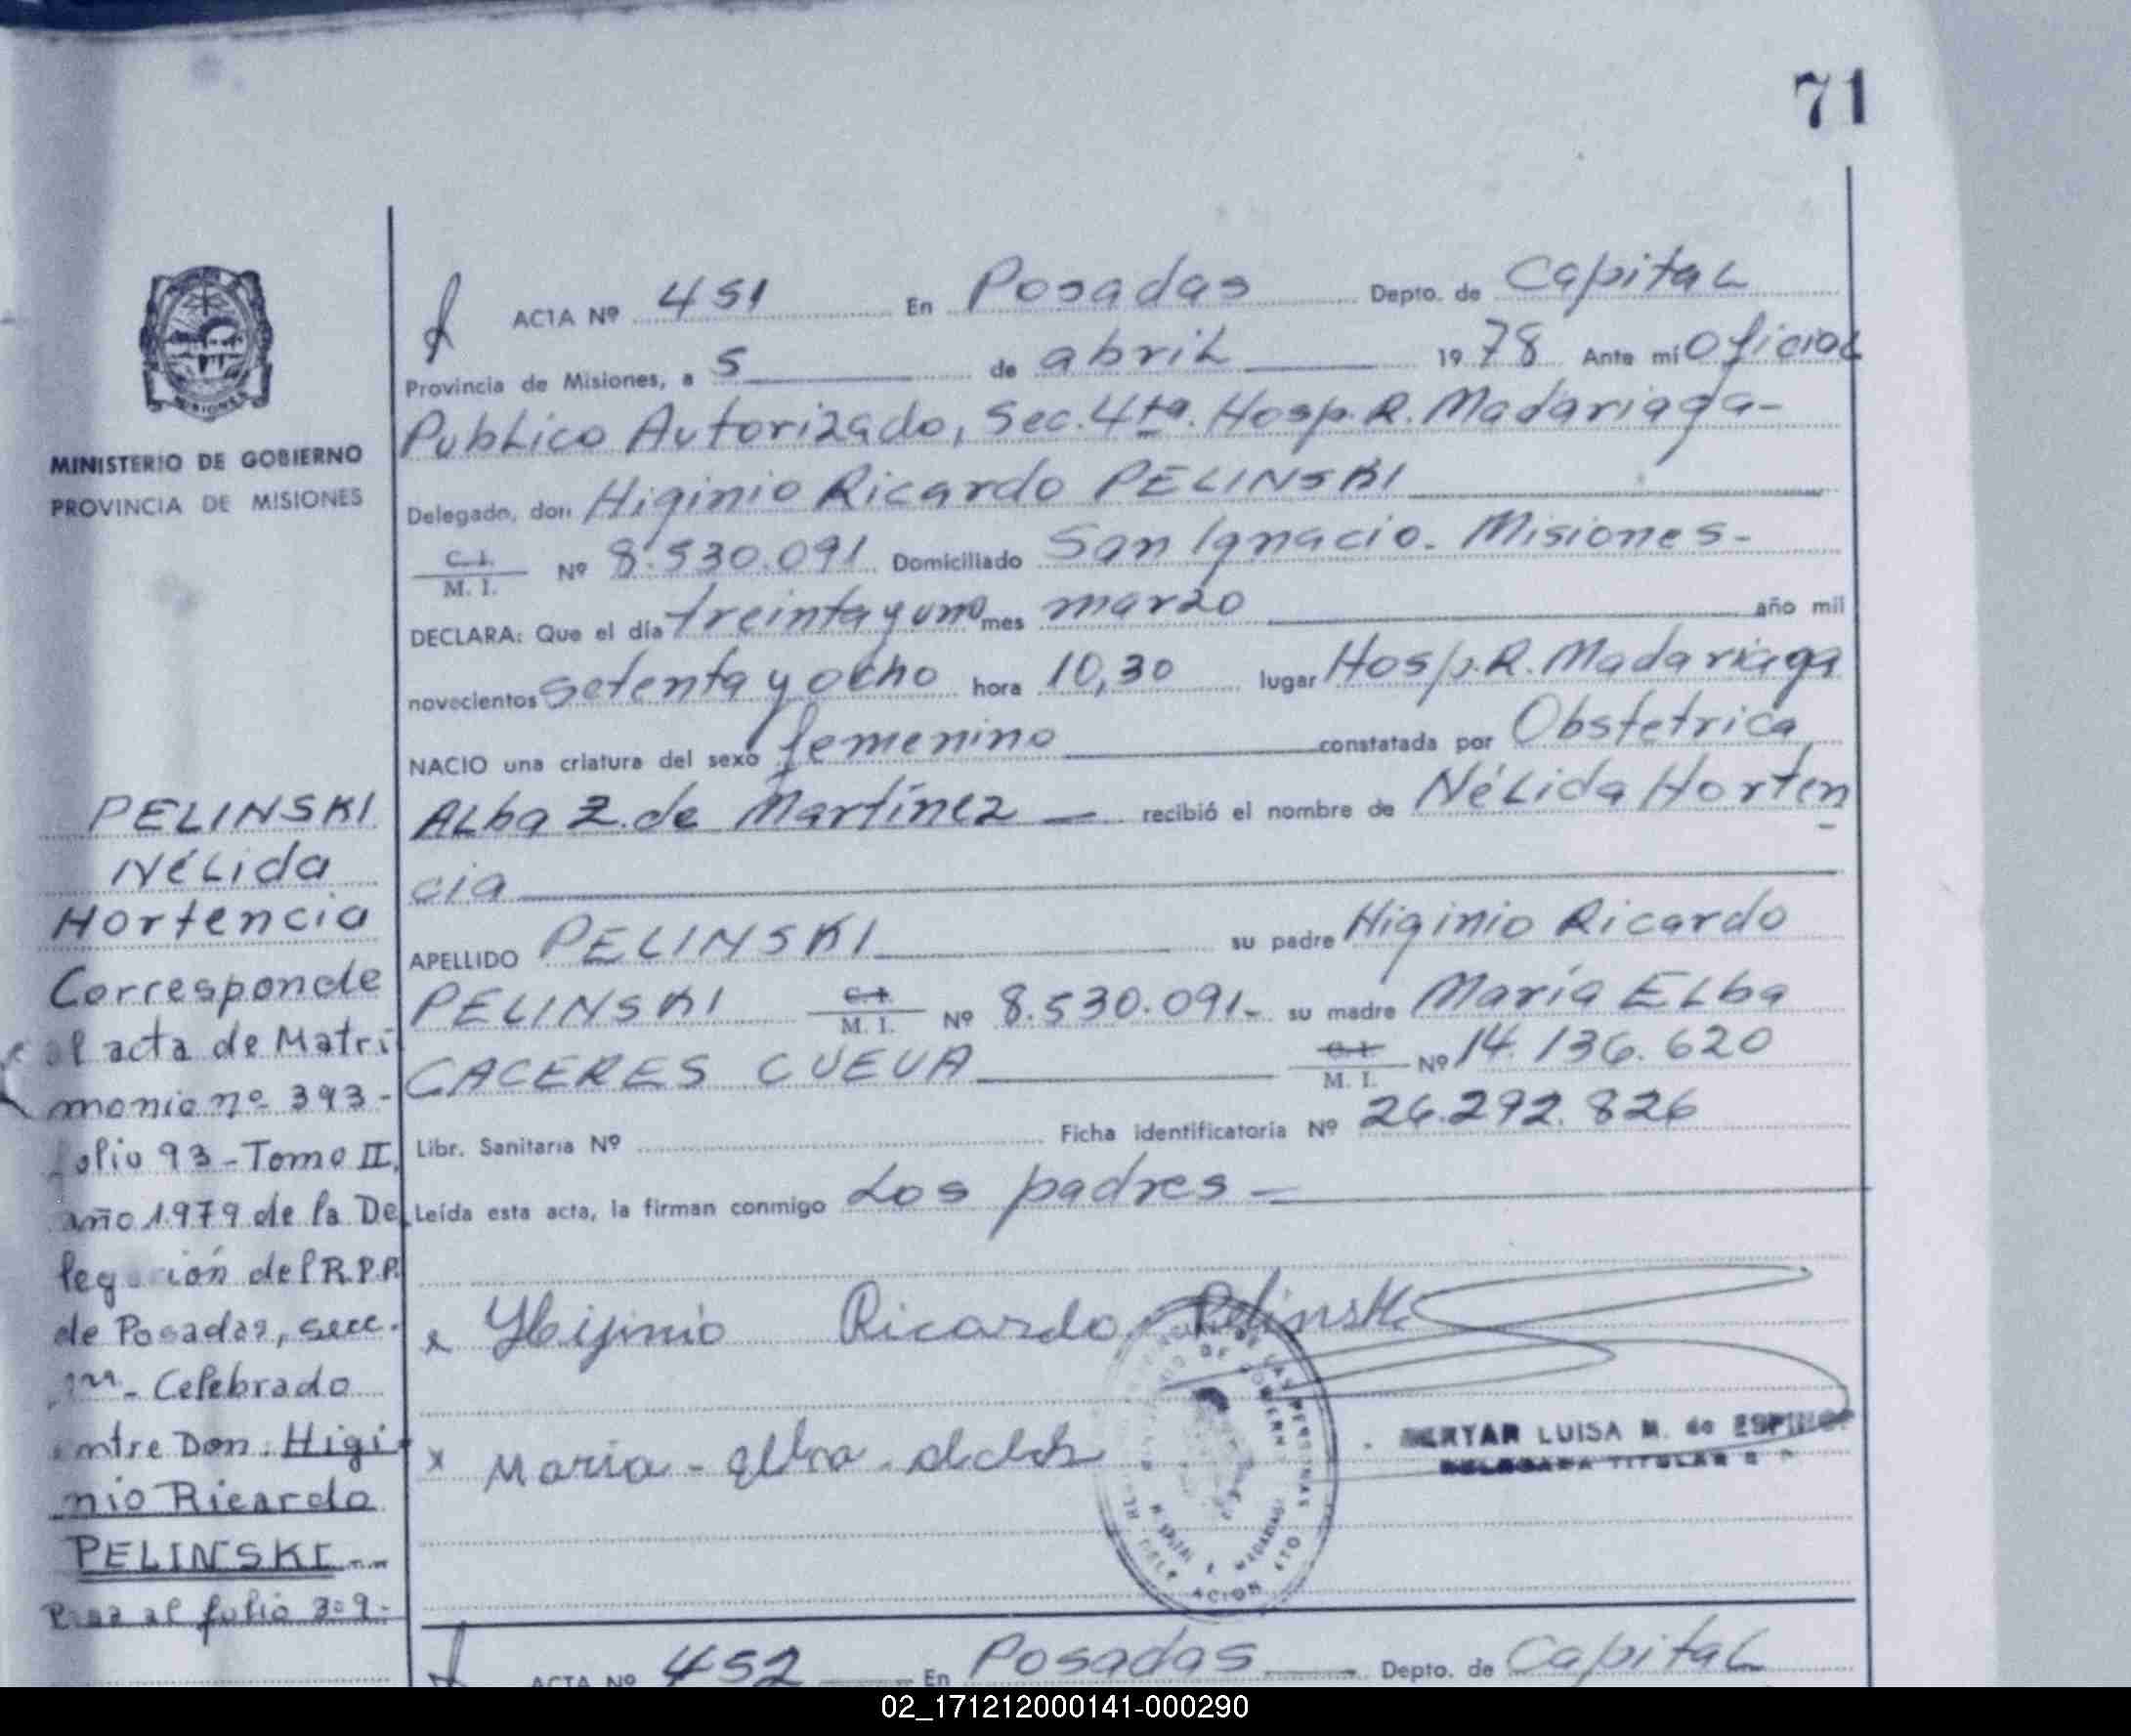 71
ACTA Nº 451 En Posadas Depto. de Capital
Provincia de Misiones, a 5 de abril 1978 Ante mí Oficial
Publico Autorizado, Sec. 4ta. Hosp. R. Madariaga-
Delegado, don Higinio Ricardo PELINSKI
C. I.
M. I. Nº 8.530.091 Domiciliado San Ignacio. Misiones-
DECLARA: Que el día treinta y uno mes marzo año mil
novecientos setenta y ocho hora 10,30 lugar Hosp. R. Madariaga
NACIO una criatura del sexo femenino constatada por Obstetrica
Alba Z. de Martínez — recibió el nombre de Nélida Horten
cia
APELLIDO PELINSKI su padre Higinio Ricardo
PELINSKI C. I. M. I. Nº 8.530.091- su madre María Elba
CACERES CUEVA C. I. M. I. Nº 14.136.620
Libr. Sanitaria Nº Ficha identificatoria Nº 26.292.826
Leída esta acta, la firman conmigo Los padres-
Higinio Ricardo Pelinski
x Maria - elba
LUISA M. de ESPINO
DELEGADA TITULAR
MISIONES
MINISTERIO DE GOBIERNO
PROVINCIA DE MISIONES
PELINSKI
Nélida
Hortencia
Corresponde
al acta de Matri
monio nº 393-
folio 93-Tomo II,
año 1979 de la De
legación del R.P.P.
de Posadas, secc.
Celebrado
entre Don: Higi
nio Ricardo
PELINSKI--
Pasa al folio 309-
ACTA Nº 452 En Posadas Depto. de Capital
02_171212000141-000290